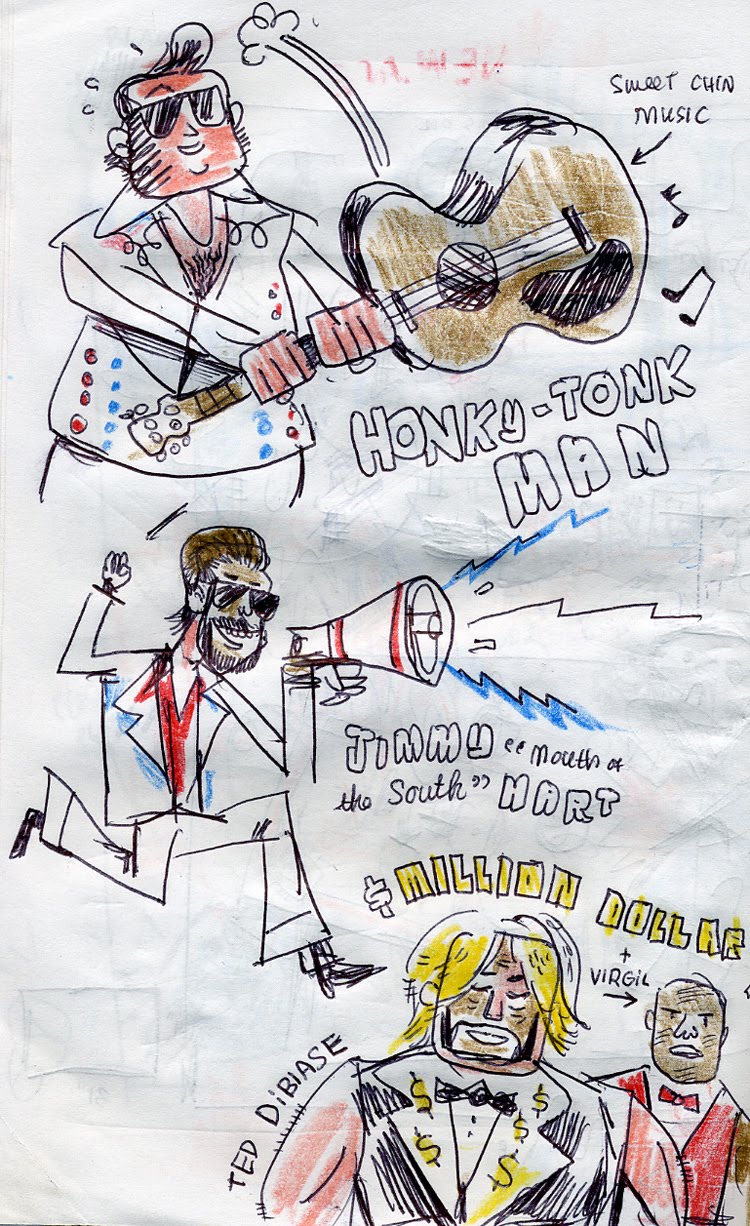 SWEET CHIN
MUSIC
HONKY-TONK
MAN
JIMMY "Mouth of
the South" HART
$ MILLION DOLLAR
+
VIRGIL
TED DiBIASE
$
$
$
$
$